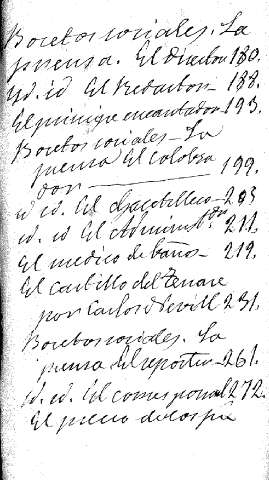 Bocetos sociales. La
prensa. El director 180.
Id. id El Redactor - 188.
El principe encantador - 193.
Bocetos sociales - La
prensa El colobra
dor 199.
id id. El Gacetillero - 205
id. id El Adminis. dor 211.
El medico de baños - 219.
El castillo del Tenare
por Carlos Sevill 231.
Bocetos sociales. La
prensa El reporter - 261.
Id. id. El corresponsal 272.
El precio de los